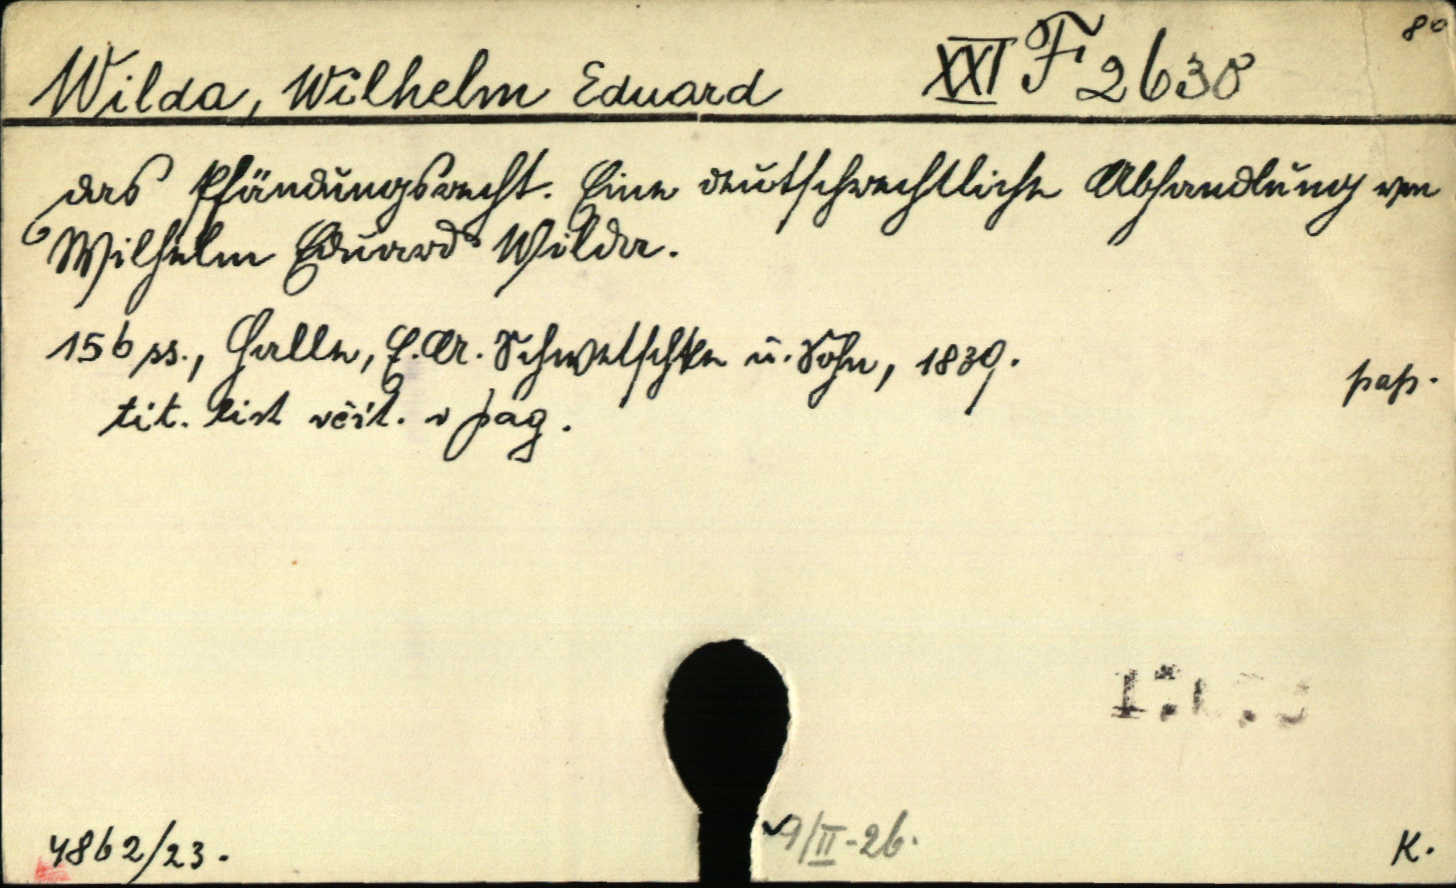 8°
Wilda, Wilhelm Eduard XXI F 2638
das Pfändungsrecht. Eine deutschrechtliche Abhandlung von
Wilhelm Eduard Wilda.
156 ss., Halle, C. A. Schwetschke u. Sohn, 1839.
pap.
tit. list včít. v pag.
4862/23.
9/II-26.
K.